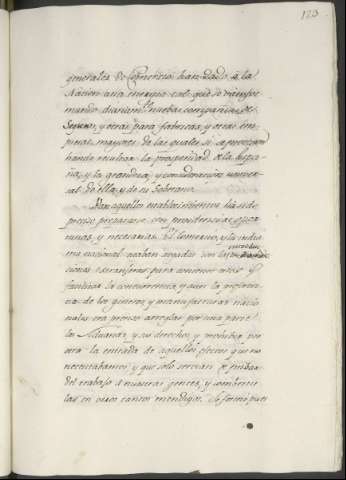 123
generales de Comercio han dado a la
Nacion una energia tal que se van for
mando diariam.te nuebas compañias de
Seguros, y otras para fabricas, y otras em
presas mayores de las quales si se protegen
hande resultar la prosperidad de la Espa
ña, y la grandeza, y consideracion univer
sal de ella y de su Soberano.
Para aquellos establecimientos ha sido
preciso prepararse con providencias oportunas
y necesarias. El comercio, y la indus
tria nacional estaban arruinados con las introduc
ciones extranjeras para contener estas y
facilitar la concurrencia, y aun la preferen
cia de los generos, y manufacturas nacio
nales era preciso arreglar por una parte
las Aduanas, y sus derechos, y prohibir por
otra la entrada de aquellos efectos que no
necesitabamos, y que solo servian de privar
del trabajo a nuestras gentes, y combertir
las en otros tantos mendigos. Se formó pues